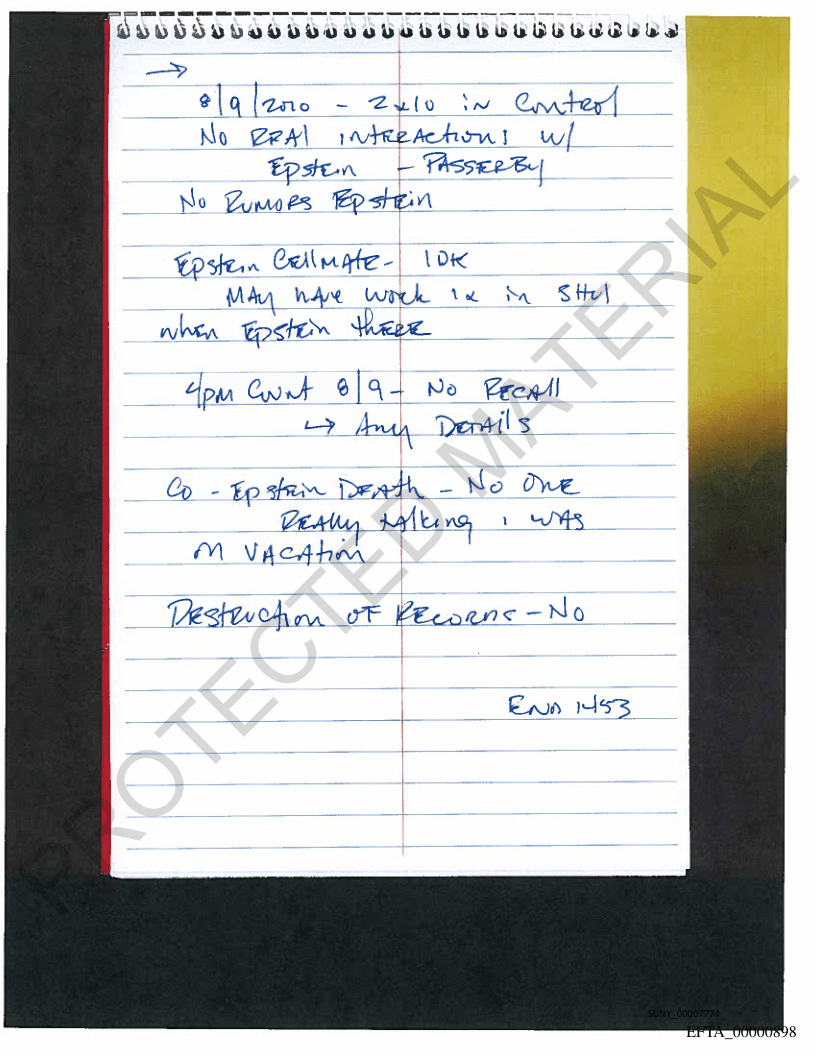 →
8/9/2010 - 2x10 in Control
No REAl interActions w/
Epstein - PASSERBy
No Rumors Epstein
Epstein CellmAte - IDK
MAy hAve work 1x in SHU
when Epstein thERE
4pm Count 8/9 - No RecAll
↳ Any DetAils
Co - Epstein DeAth - No One
REAlly tAlking, I WAS
on VACAtion
DEstRuction of Records - No
End 1453
PROTECTED MATERIAL
SDNY_00007774
EFTA_00000898